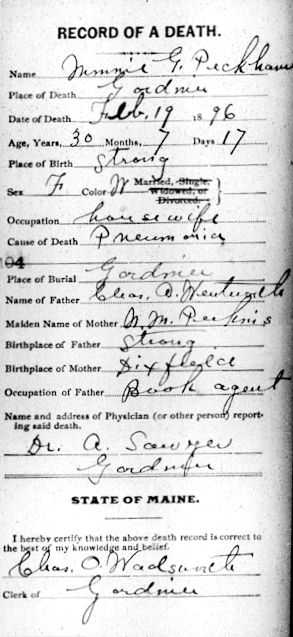 RECORD OF A DEATH.
Name Minnie G. Peckham
Place of Death Gardiner
Date of Death Feb. 19 1896
Age, Years, 30 Months, 7 Days 17
Place of Birth Strong
Sex F Color W Married, Single, Widowed, or Divorced.
Occupation housewife
Cause of Death Pneumonia
104
Place of Burial Gardiner
Name of Father Chas. D. Wentworth
Maiden Name of Mother N. M. Perkins
Birthplace of Father Strong
Birthplace of Mother Dixfield
Occupation of Father Book agent
Name and address of Physician (or other person) report-
ing said death.
Dr. A. Sawyer
Gardiner
STATE OF MAINE.
I hereby certify that the above death record is correct to
the best of my knowledge and belief.
Chas. O. Wadsworth
Clerk of Gardiner